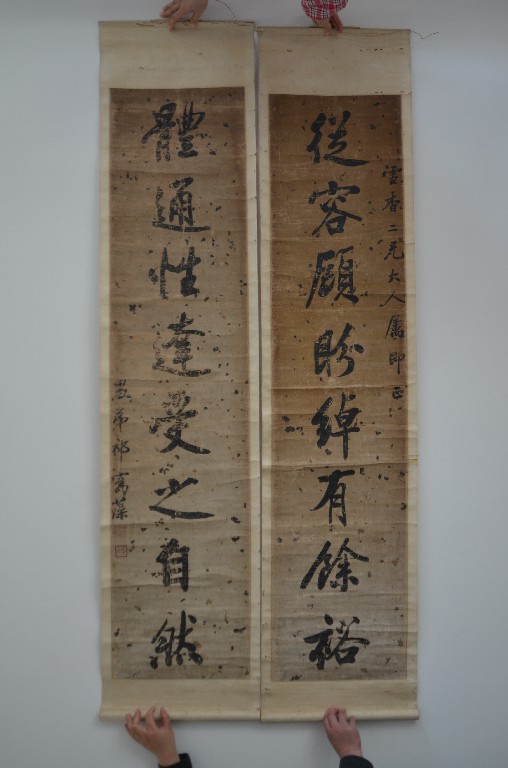 雪香二兄大人属即正
從容顧盼綽有餘裕
體通性達受之自然
愚弟祁寯藻